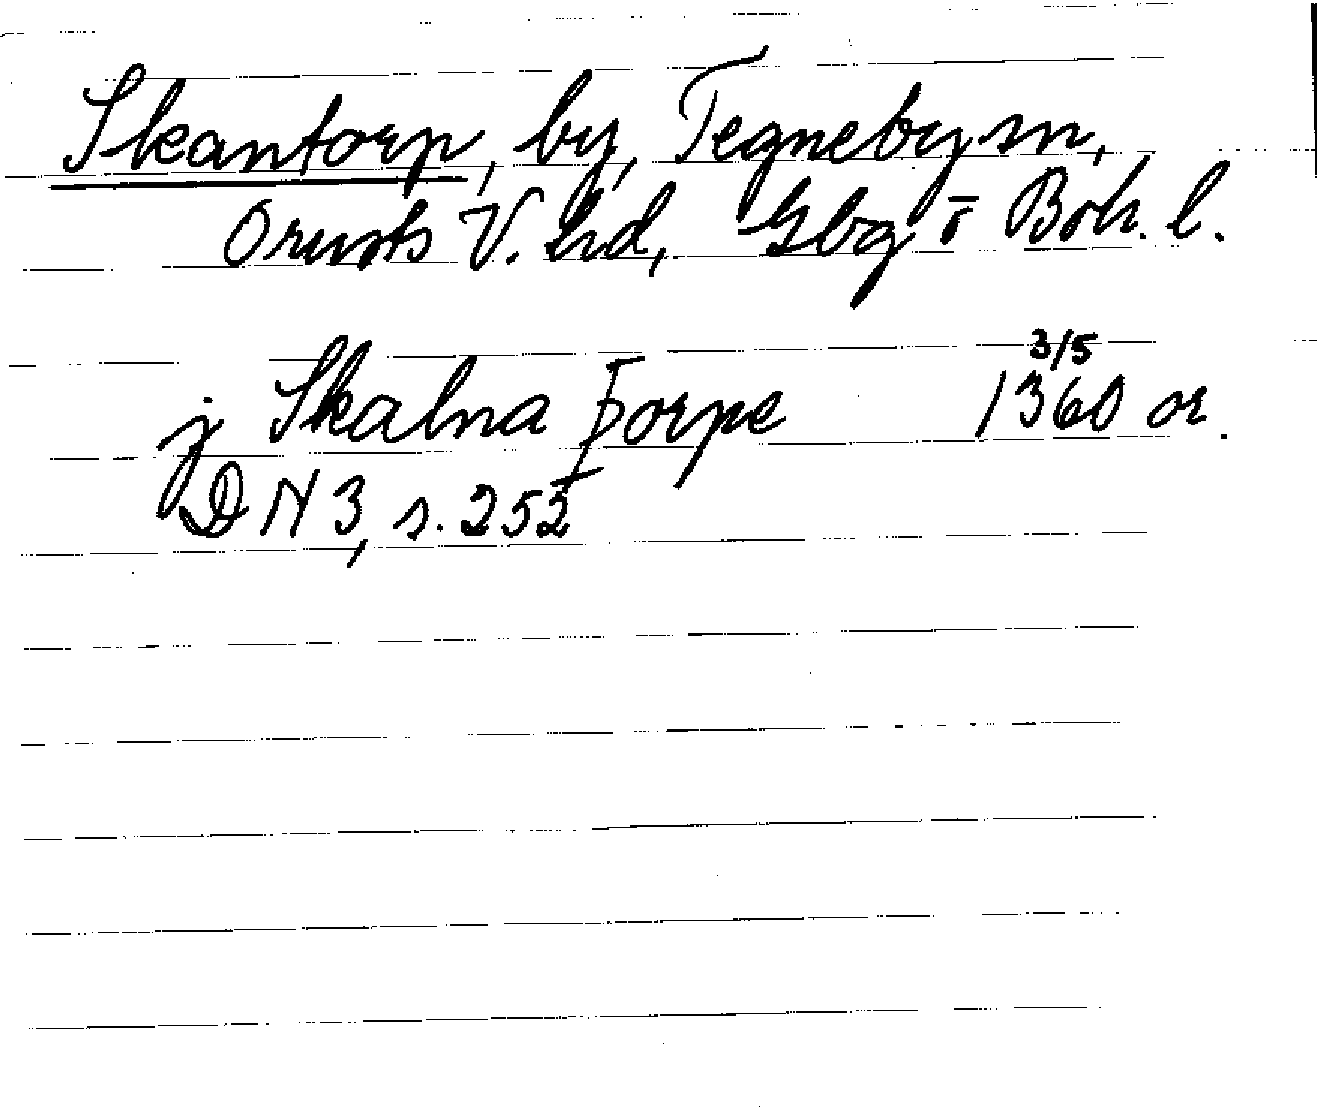 Skantorp, by, Tegneby sn,
Orusts V. hd, Gbg o Boh. l.
j Skalna þorpe 1360 3/5 or.
DN 3, s. 252